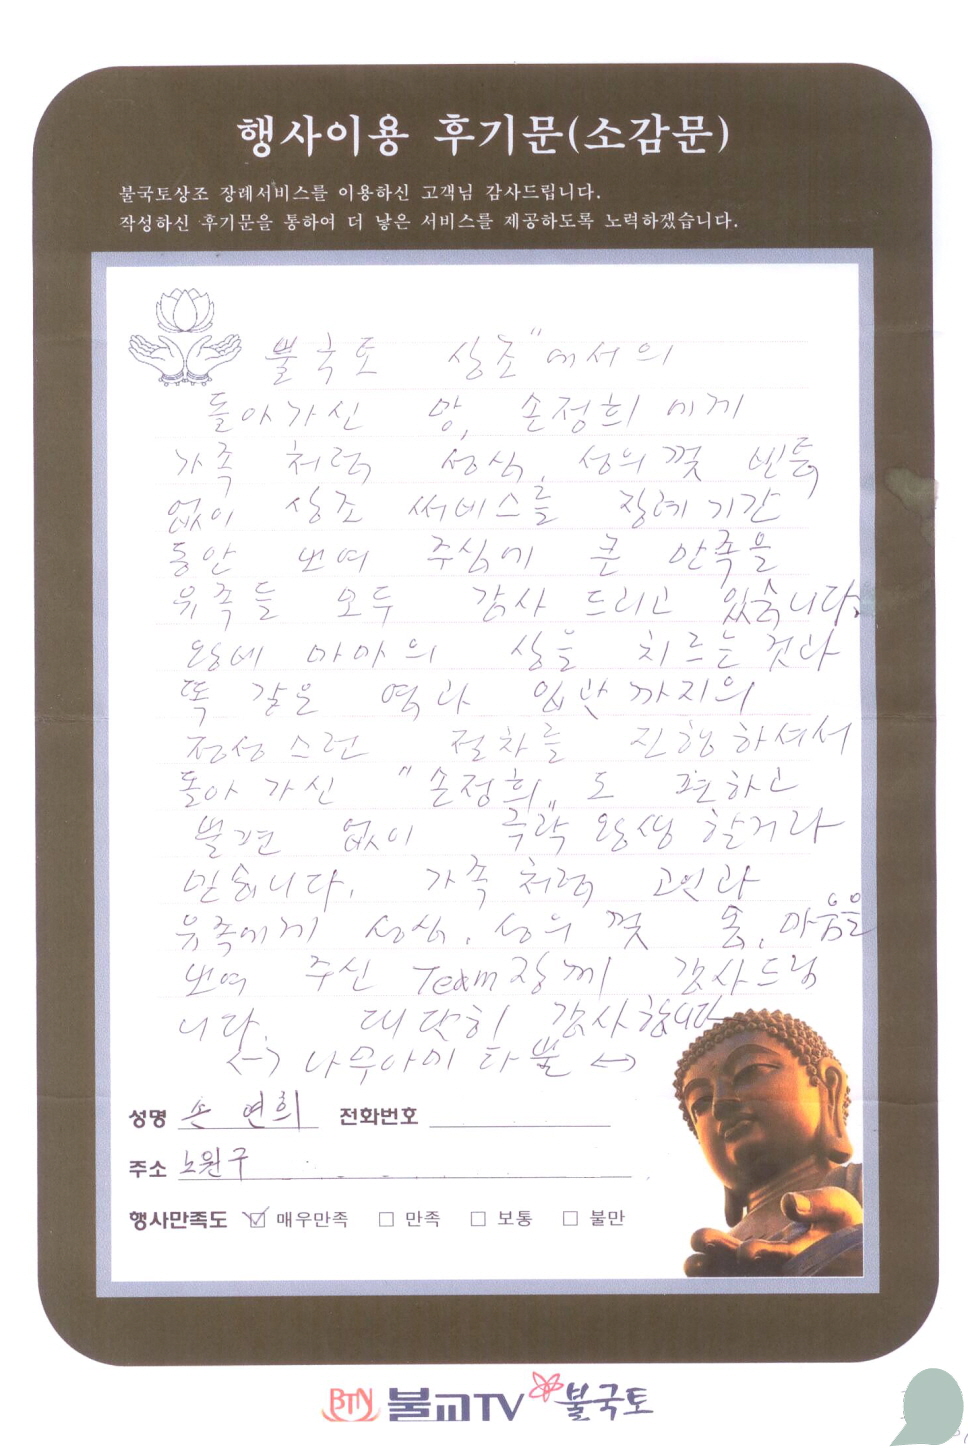 행사이용 후기문(소감문)
불국토상조 장례서비스를 이용하신 고객님 감사드립니다.
작성하신 후기문을 통하여 더 낳은 서비스를 제공하도록 노력하겠습니다.
불국토 상조"에서의
돌아가신 망, 손정희 에게
가족 처럭 성심, 성의껏 빈틈
없이 상조 써비스를 장례기간
동안 보여 주심에 큰 만족을
유족들 모두 감사 드리고 있습니다.
왕세 마마의 상을 치르는것과
똑 같은 염과 입관까지의
정성스런 절차를 진행하셔서
돌아가신 "손정희" 도 편하고
불편 없이 극락왕생할거라
믿습니다. 가족처럼 고인과
유족에게 성심, 성의껏 몸, 마음을
보여 주신 Team장께 감사드립
니다. 대단히 감사합니다
<-> 나무아미타불 <->
성명 손연희 전화번호
주소 노원구
행사만족도 ☑ 매우만족 □ 만족 □ 보통 □ 불만
BTN 불교TV 불국토